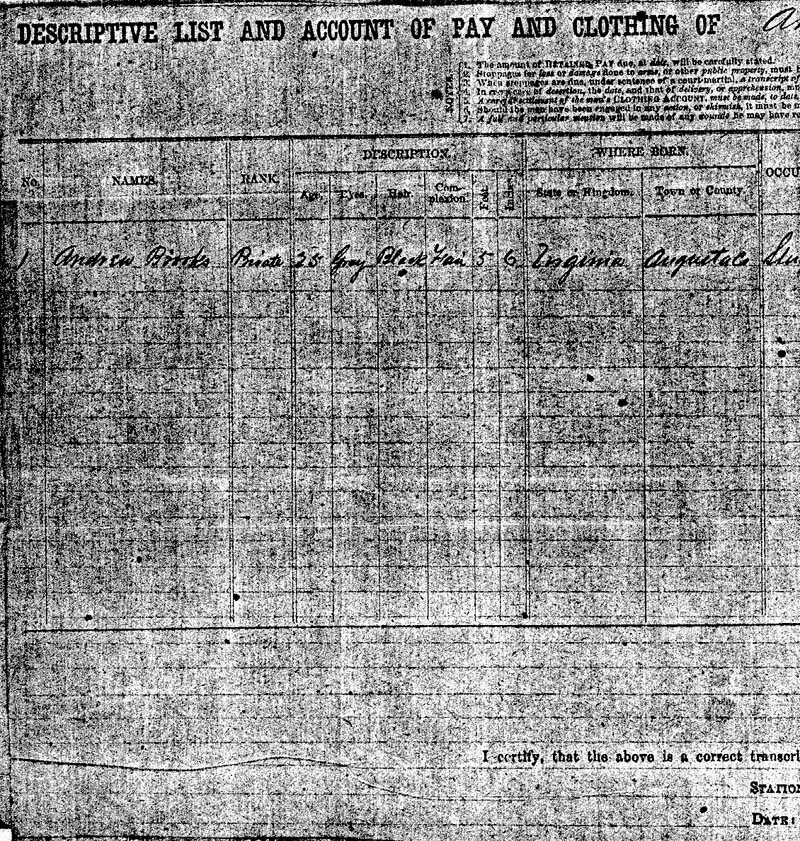 DESCRIPTIVE LIST AND ACCOUNT OF PAY AND CLOTHING OF
NOTES.
1. The amount of RETAINED PAY due, at date, will be carefully stated.
2. Stoppages for loss or damage done to arms, or other public property, must
3. When stoppages are due, under sentence of a court-martial, a transcript of
4. In every case of desertion, the date, and that of delivery, or apprehension,
5. A careful settlement of the man's CLOTHING ACCOUNT, must be made, to date,
6. Should the man have been engaged in any action, or skirmish, it must be
7. A full and particular mention will be made of any wounds he may have
DESCRIPTION. WHERE BORN.
No. NAMES. RANK. Age. Eyes. Hair. Com-plexion. Feet. Inches. State or Kingdom. Town or County. OCCU
1 Andrew Brooks Private 25 Gray Black Fair 5 6 Virginia Augusta Co
I certify, that the above is a correct transcri
STATION
DATE: